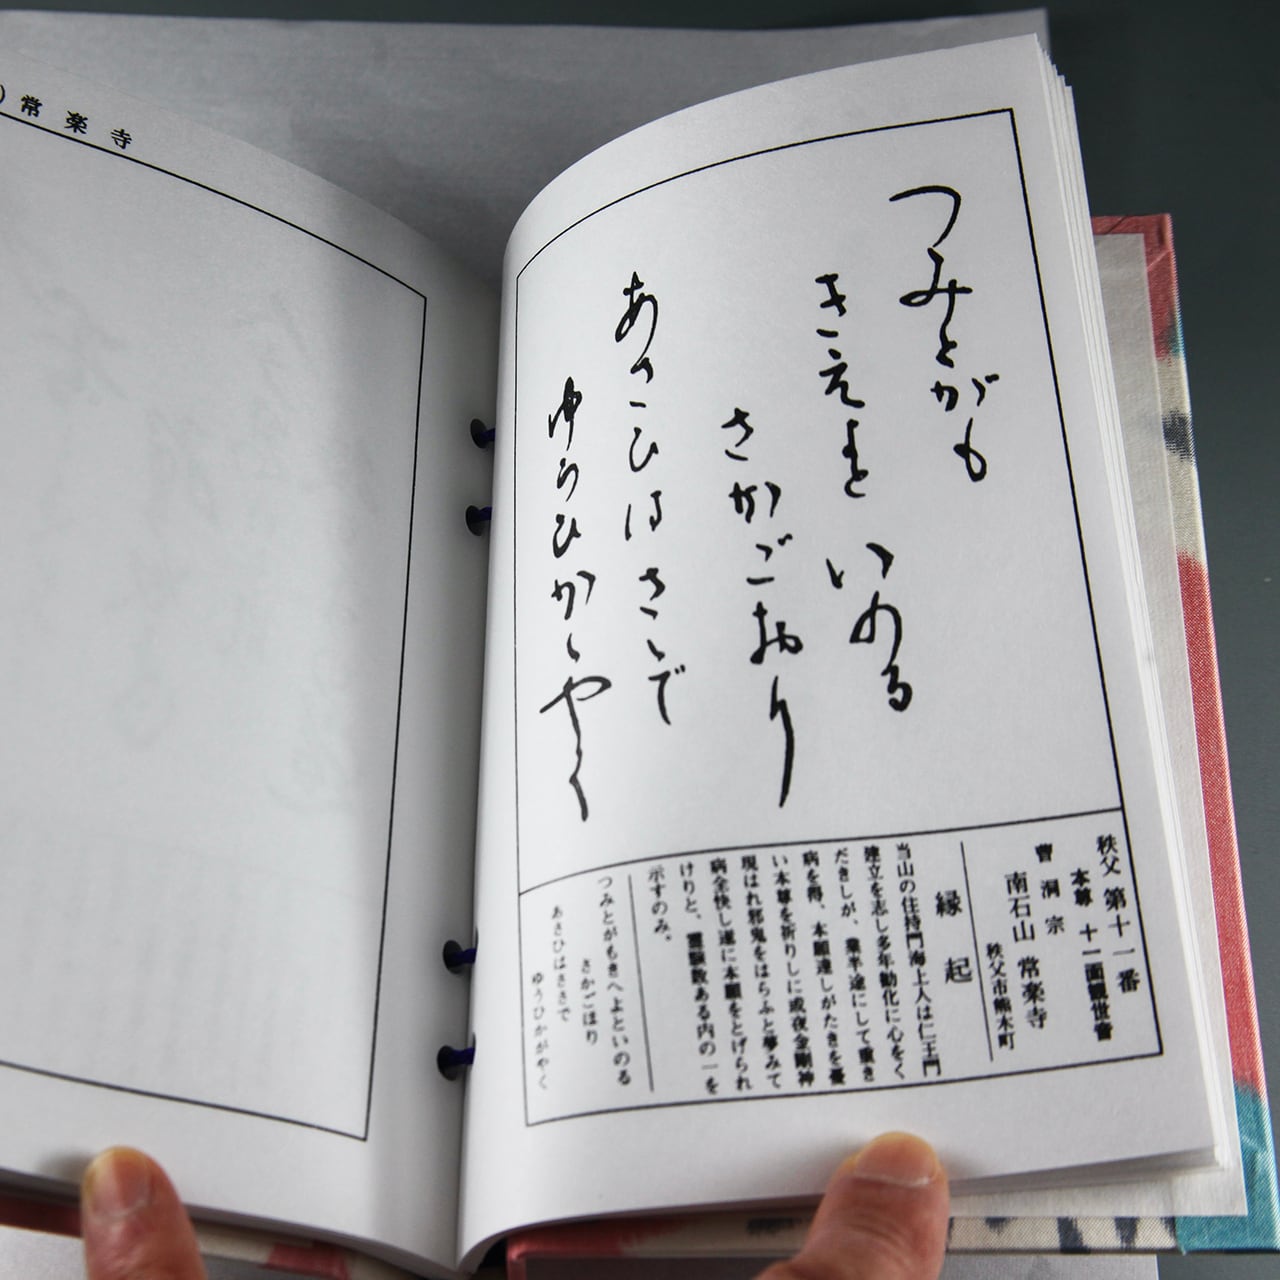 つみとがも
きえよと いのる
さかごおり
あさひはさゝで
ゆうひかゝやく
秩父 第十一番
本尊 十一面観世音
曹洞宗
南石山 常楽寺
秩父市熊木町
縁起
当山の住持門海上人は仁王門
建立を志し多年勧化に心をく
だきしが、業半途にして重き
病を得、本願達しがたきを憂
い本尊を祈りしに或夜金剛神
現はれ邪鬼をはらふと夢みて
病全快し遂に本願をとげられ
けりと、霊験数ある内の一を
示すのみ。
つみとがもきへよといのる
さかごほり
あさひはささで
ゆうひかがやく
)常楽寺